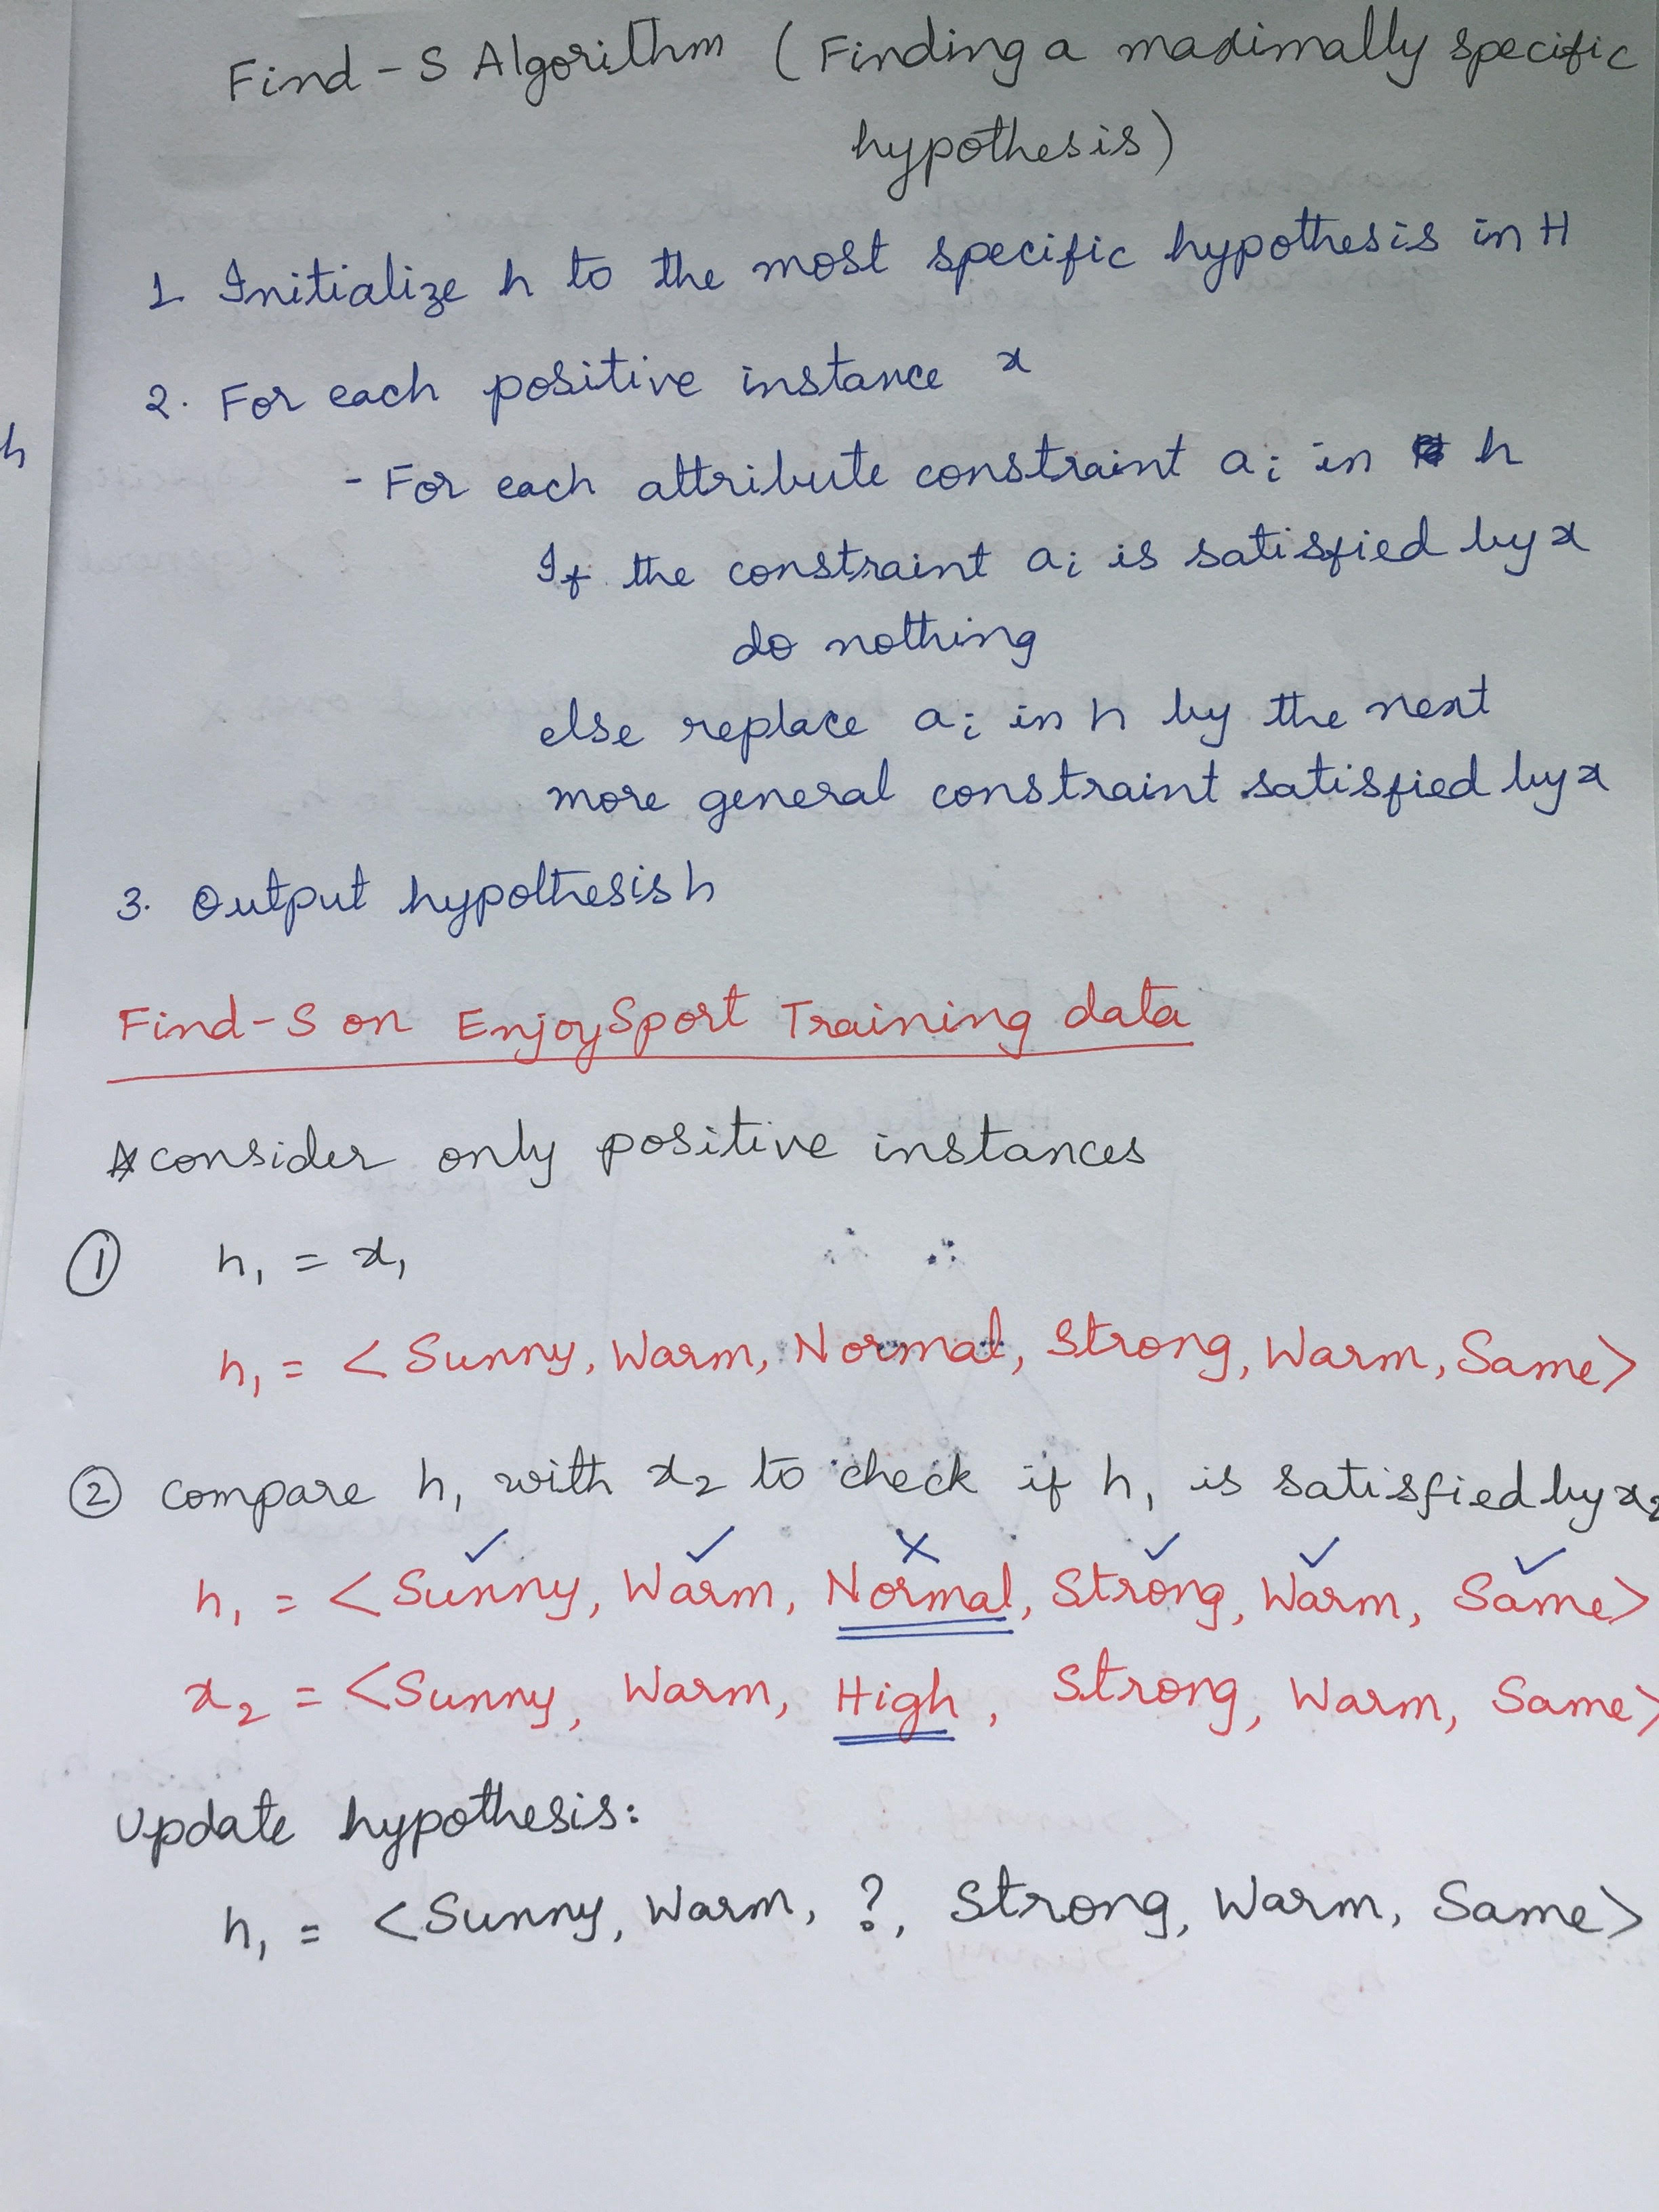 Find-S Algorithm (Finding a maximally specific
hypothesis)
1. Initialize h to the most specific hypothesis in H
2. For each positive instance x
h
- For each attribute constraint ai in h
If the constraint ai is satisfied by x
do nothing
else replace ai in h by the next
more general constraint satisfied by x
3. Output hypolthesis h
Find-S on EnjoySport Training data
consider only positive instances
① h1 = x1
h1 = <Sunny, Warm, Normal, Strong, Warm, Same>
② compare h1 with x2 to check if h1 is satisfied by x2
✓ ✓ X ✓ ✓ ✓
h1 = <Sunny, Warm, Normal, Strong, Warm, Same>
x2 = <Sunny, Warm, High, Strong, Warm, Same>
Update hypothesis:
h1 = <Sunny, Warm, ?, Strong, Warm, Same>